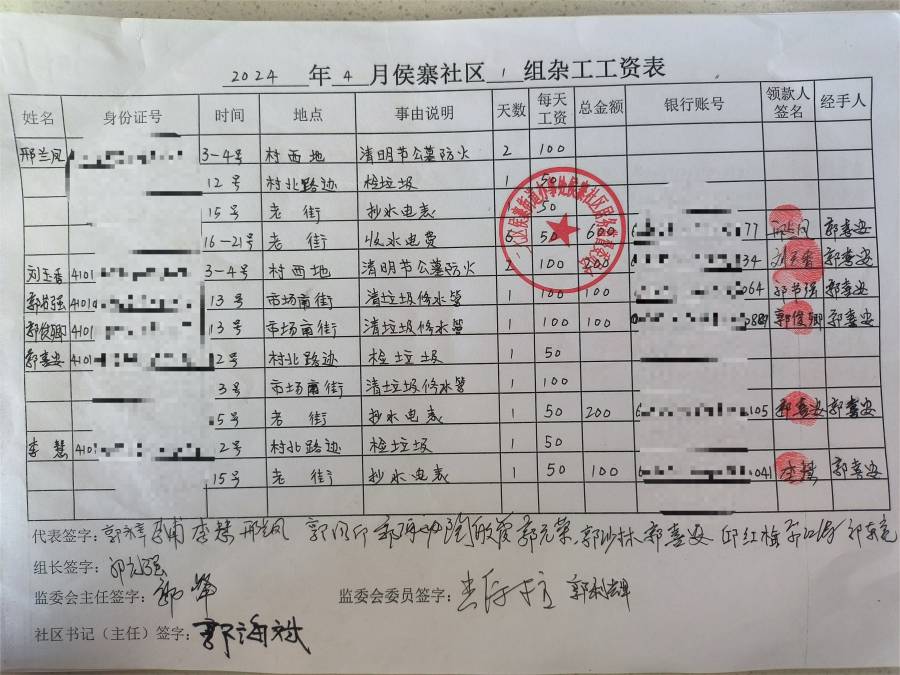 2024 年 4 月侯寨社区 1 组杂工工资表
姓名 身份证号 时间 地点 事由说明 天数 每天工资 总金额 银行账号 领款人签名 经手人
邢兰凤 3-4号 村西地 清明节公墓防火 2 100
12号 村北路边 检垃圾 1 50
15号 老街 抄水电表 1 50
16-21号 老街 收水电费 6 50 600 77 郭喜安
刘玉香 4101 3-4号 村西地 清明节公墓防火 2 100 200 34 刘玉香 郭喜安
4101 13号 市场南街 清垃圾修水管 1 100 100 064 郭喜安
郭俊卿 4101 13号 市场南街 清垃圾修水管 1 100 100 郭俊卿 郭喜安
郭喜安 4101 2号 村北路边 检垃圾 1 50
3号 市场南街 清垃圾修水管 1 100
15号 老街 抄水电表 1 50 200 105 郭喜安 郭喜安
李慧 4101 2号 村北路边 检垃圾 1 50
15号 老街 抄水电表 1 50 100 041 李慧 郭喜安
代表签字: 李慧 邢兰凤 郭喜安 邱红梅
组长签字:
监委会主任签字: 监委会委员签字: 郭利辉
社区书记（主任）签字: 郭海斌